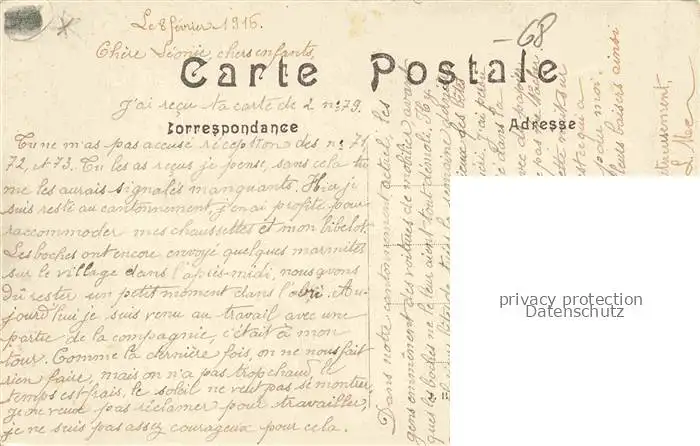 Le 8 février 1916.
- 68
Chère Léonie, chers enfants,
Carte Postale
J'ai reçu ta carte de 2 nº 79.
Correspondance
Adresse
Tu ne m'as pas accusé réception des nos 71
72, et 73. Tu les as reçus je pense, sans cela tu
me les aurais signalés manquants. Hier je
suis resté au cantonnement, j'en ai profité pour
raccommoder mes chaussettes et mon bibelot.
Les boches ont encore envoyé quelques marmites
sur le village dans l'après-midi, nous avons
dû rester un petit moment dans l'abri. Au-
jourd'hui je suis venu au travail avec une
partie de la compagnie, c'était à mon
tour. Comme la dernière fois, on ne nous fait
rien faire, mais on n'a pas trop chaud, le
temps est frais, le soleil ne veut pas se montrer,
je ne veux pas réclamer pour travailler,
je ne suis pas assez courageux pour cela.
Dans notre cantonnement actuel, les
gens emmènent des voitures de mobilier avant
que les boches ne le leur aient tout démoli.
la semaine
dans la
leurs baisers ainsi
privacy protection
Datenschutz